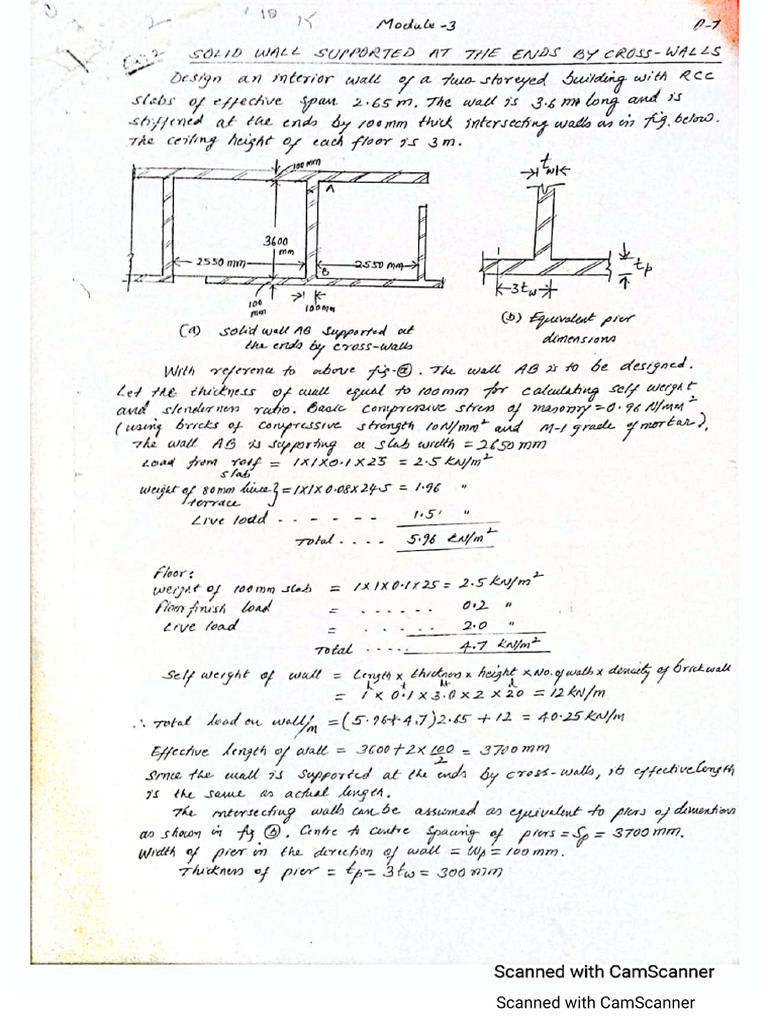 Module-3
P-7
Ex:2
SOLID WALL SUPPORTED AT THE ENDS BY CROSS-WALLS
Design an interior wall of a two storeyed building with RCC
slabs of effective span 2.65m. The wall is 3.6 m long and is
stiffened at the ends by 100mm thick intersecting walls as in fig. below.
The ceiling height of each floor is 3m.
100mm
A
3600
mm
2550 mm
2550 mm
B
100
mm
100mm
tw
tp
3tw
(a) Solid wall AB supported at
the ends by cross-walls
(b) Equivalent pier
dimensions
With reference to above fig-(a). The wall AB is to be designed.
Let the thickness of wall equal to 100mm for calculating self weight
and slenderness ratio. Basic compressive stress of masonry = 0.96 N/mm²
(using bricks of compressive strength 10N/mm² and M-1 grade of mortar).
The wall AB is supporting a slab width = 2650 mm
Load from roof slab = 1x1x0.1x25 = 2.5 kN/m²
Weight of 80mm lime terrace } = 1x1x0.08x24.5 = 1.96 "
Live load - - - - - - 1.5 "
Total .... 5.96 kN/m²
Floor:
Weight of 100mm slab = 1x1x0.1x25 = 2.5 kN/m²
Floor finish load = ...... 0.2 "
Live load = ...... 2.0 "
Total .... 4.7 kN/m²
Self weight of wall = Length x thickness x height x No. of walls x density of brick wall
= 1 x 0.1 x 3.0 x 2 x 20 = 12 kN/m
∴ Total load on wall/m = (5.96+4.7) 2.65 + 12 = 40.25 kN/m
Effective length of wall = 3600 + 2 x 100/2 = 3700 mm
Since the wall is supported at the ends by cross-walls, its effective length
is the same as actual length.
The intersecting walls can be assumed as equivalent to piers of dimentions
as shown in fig (b). Centre to centre spacing of piers = Sp = 3700 mm.
Width of pier in the direction of wall = Wp = 100 mm.
Thickness of pier = tp = 3tw = 300 mm
Scanned with CamScanner
Scanned with CamScanner